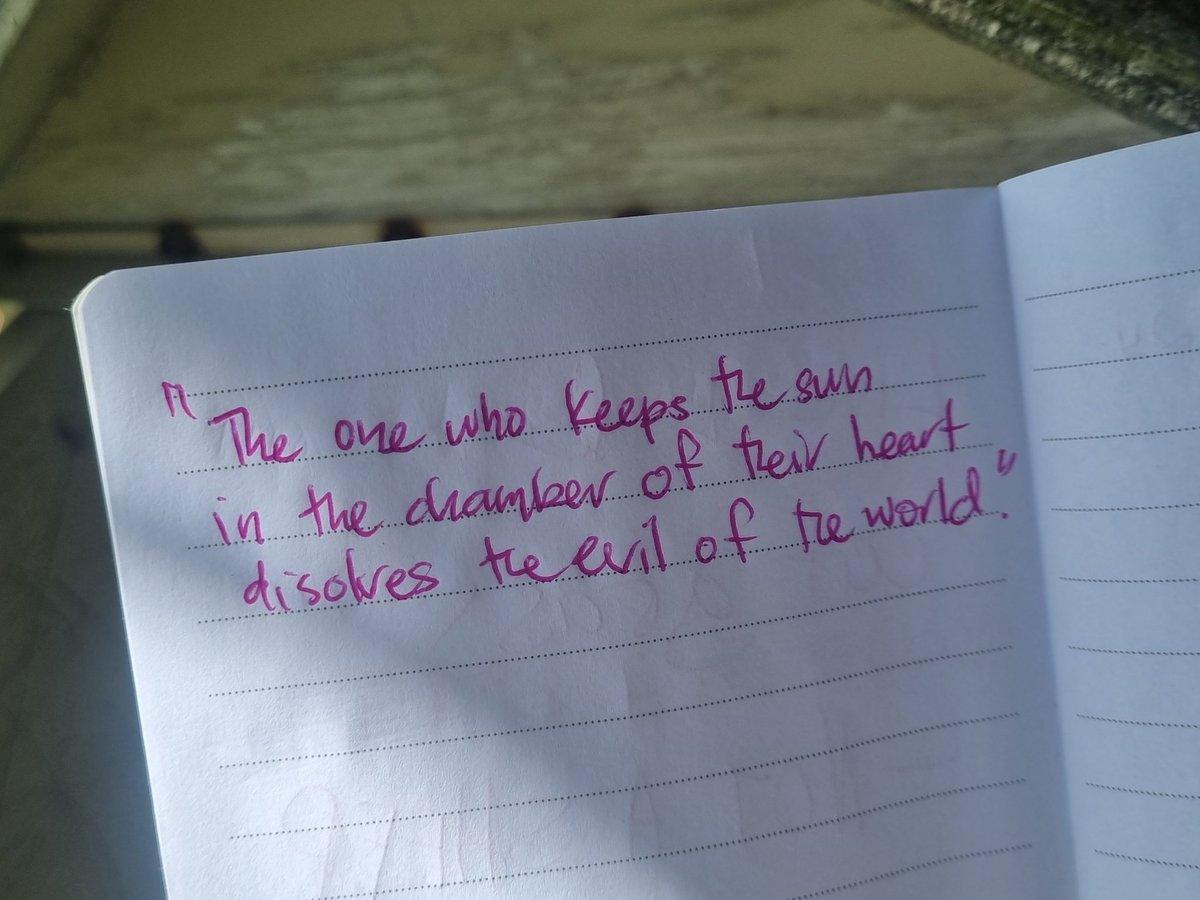 "The one who keeps the sun
in the chamber of their heart
disolves the evil of the world."